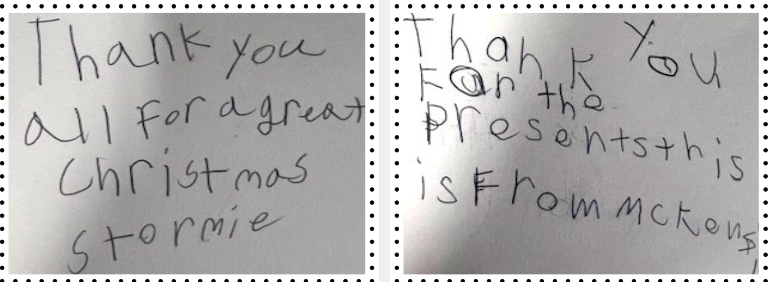 Thank you
all For a great
Christmas
stormie
Thank You
For the
presents this
is From mckens